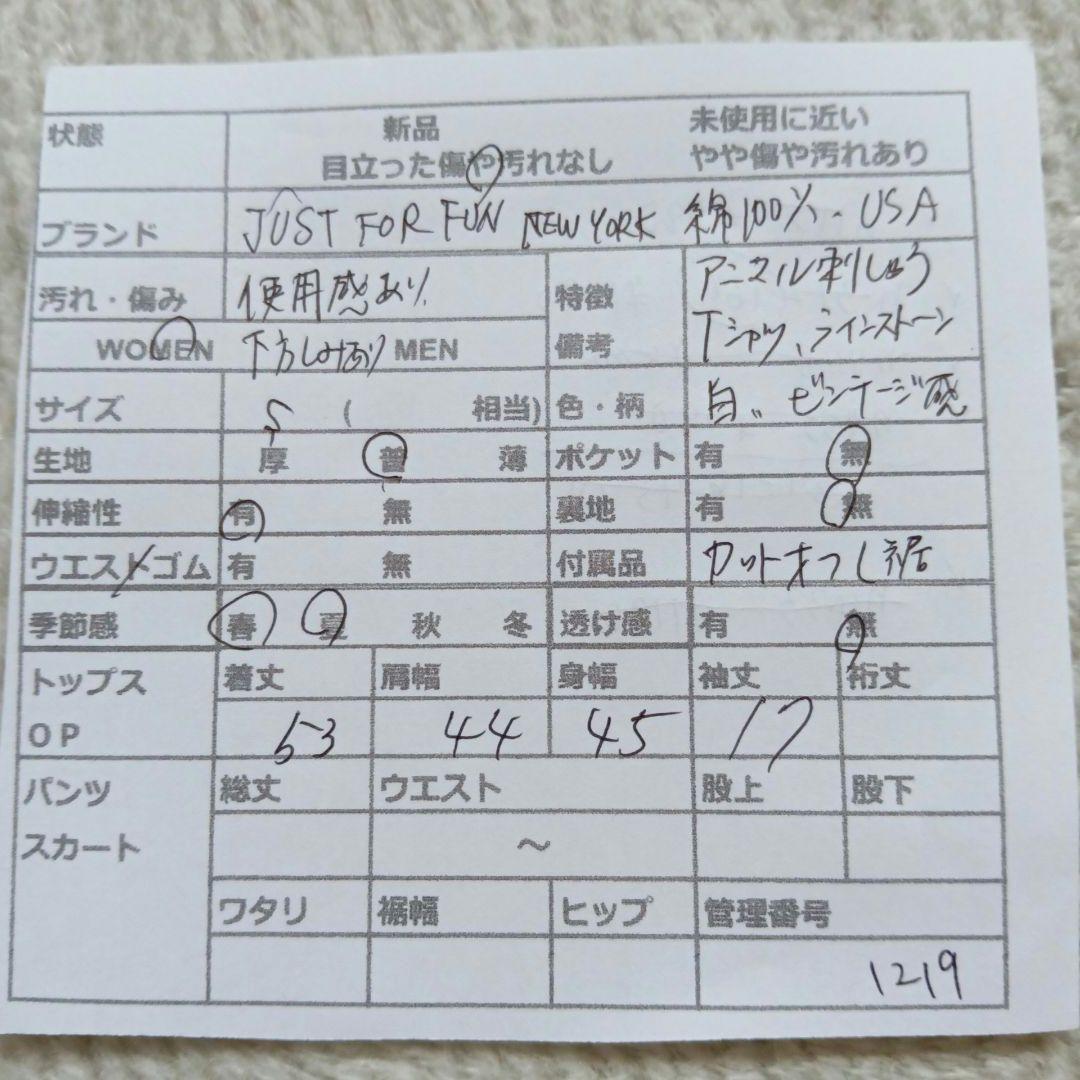 状態 新品 未使用に近い
目立った傷や汚れなし やや傷や汚れあり
ブランド JUST FOR FUN NEW YORK 綿100%. USA
汚れ・傷み 使用感あり. 特徴 アニマル刺しゅう
WOMEN 下方しみあり MEN 備考 Tシャツ、ラインストーン
サイズ S ( 相当) 色・柄 白,, ビンテージ感
生地 厚 普 薄 ポケット 有 無
伸縮性 有 無 裏地 有 無
ウエストゴム 有 無 付属品 カットオフし裾
季節感 春 夏 秋 冬 透け感 有 無
トップス 着丈 肩幅 身幅 袖丈 裄丈
OP 53 44 45 17
パンツ 総丈 ウエスト 股上 股下
スカート ～
ワタリ 裾幅 ヒップ 管理番号
1219